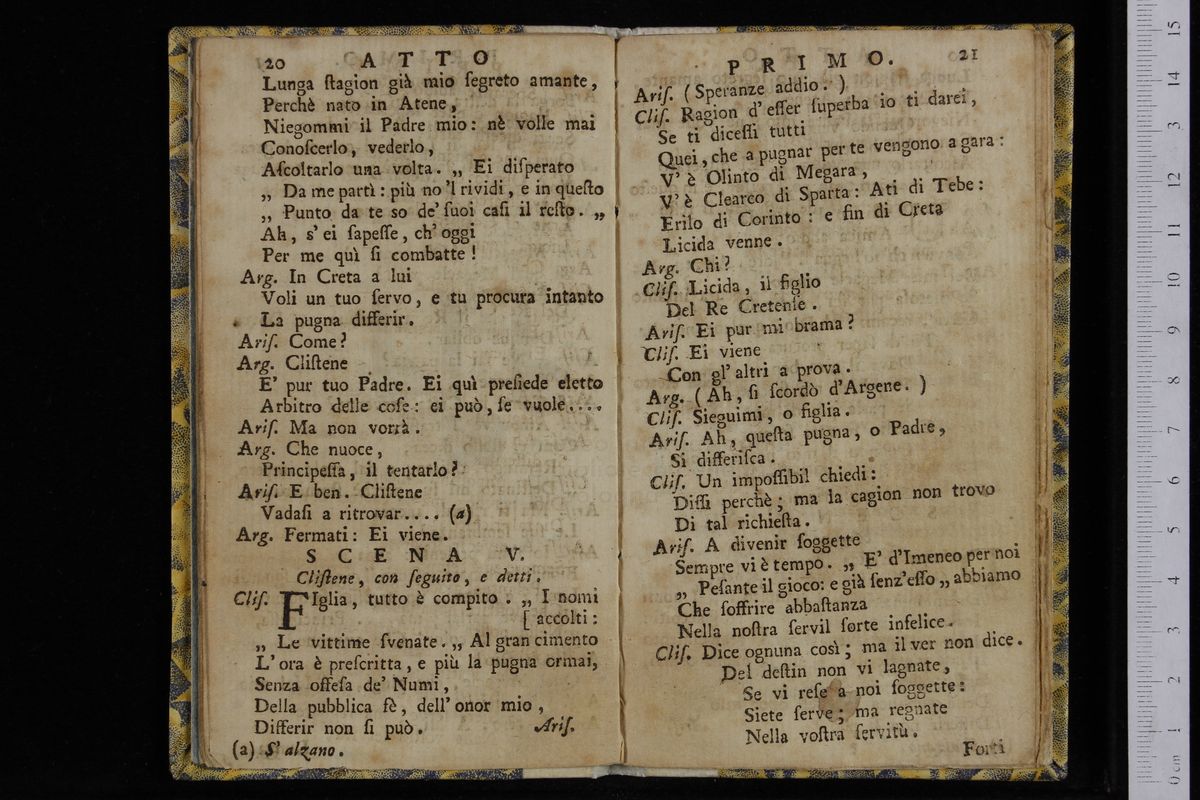 20 ATTO
Lunga ſtagion già mio ſegreto amante,
Perchè nato in Atene,
Niegommi il Padre mio: nè volle mai
Conoſcerlo, vederlo,
Aſcoltarlo una volta. „ Ei diſperato
„ Da me partì: più no 'l rividi, e in queſto
„ Punto da te so de' ſuoi caſi il reſto. „
Ah, s' ei ſapeſſe, ch' oggi
Per me quì ſi combatte!
Arg. In Creta a lui
Voli un tuo ſervo, e tu procura intanto
La pugna differir.
Ariſ. Come?
Arg. Cliſtene
E' pur tuo Padre. Ei quì preſiede eletto
Arbitro delle coſe: ei può, ſe vuole....
Ariſ. Ma non vorrà.
Arg. Che nuoce,
Principeſſa, il tentarlo?
Ariſ. E ben. Cliſtene
Vadaſi a ritrovar.... (a)
Arg. Fermati: Ei viene.
SCENA V.
Cliſtene, con ſeguito, e detti.
Cliſ. FIglia, tutto è compito. „ I nomi
[ accolti:
„ Le vittime ſvenate. „ Al gran cimento
L' ora è preſcritta, e più la pugna ormai,
Senza offeſa de' Numi,
Della pubblica fè, dell' onor mio,
Differir non ſi può.
Ariſ.
(a) S' alzano.
PRIMO. 21
Ariſ. (Speranze addio.)
Cliſ. Ragion d' eſſer ſuperba io ti darei,
Se ti diceſſi tutti
Quei, che a pugnar per te vengono a gara:
V' è Olinto di Megara,
V' è Clearco di Sparta: Ati di Tebe:
Erilo di Corinto: e fin di Creta
Licida venne.
Arg. Chi?
Cliſ. Licida, il figlio
Del Re Cretenſe.
Ariſ. Ei pur mi brama?
Cliſ. Ei viene
Con gl' altri a prova.
Arg. (Ah, ſi ſcordò d'Argene.)
Cliſ. Sieguimi, o figlia.
Ariſ. Ah, queſta pugna, o Padre,
Si differiſca.
Cliſ. Un impoſſibil chiedi:
Diſſi perchè; ma la cagion non trovo
Di tal richieſta.
Ariſ. A divenir ſoggette
Sempre vi è tempo. „ E' d'Imeneo per noi
„ Peſante il gioco: e già ſenz'eſſo „ abbiamo
Che ſoffrire abbaſtanza
Nella noſtra ſervil ſorte infelice.
Cliſ. Dice ognuna così; ma il ver non dice.
Del deſtin non vi lagnate,
Se vi reſe a noi ſoggette:
Siete ſerve; ma regnate
Nella voſtra ſervitù.
Forti